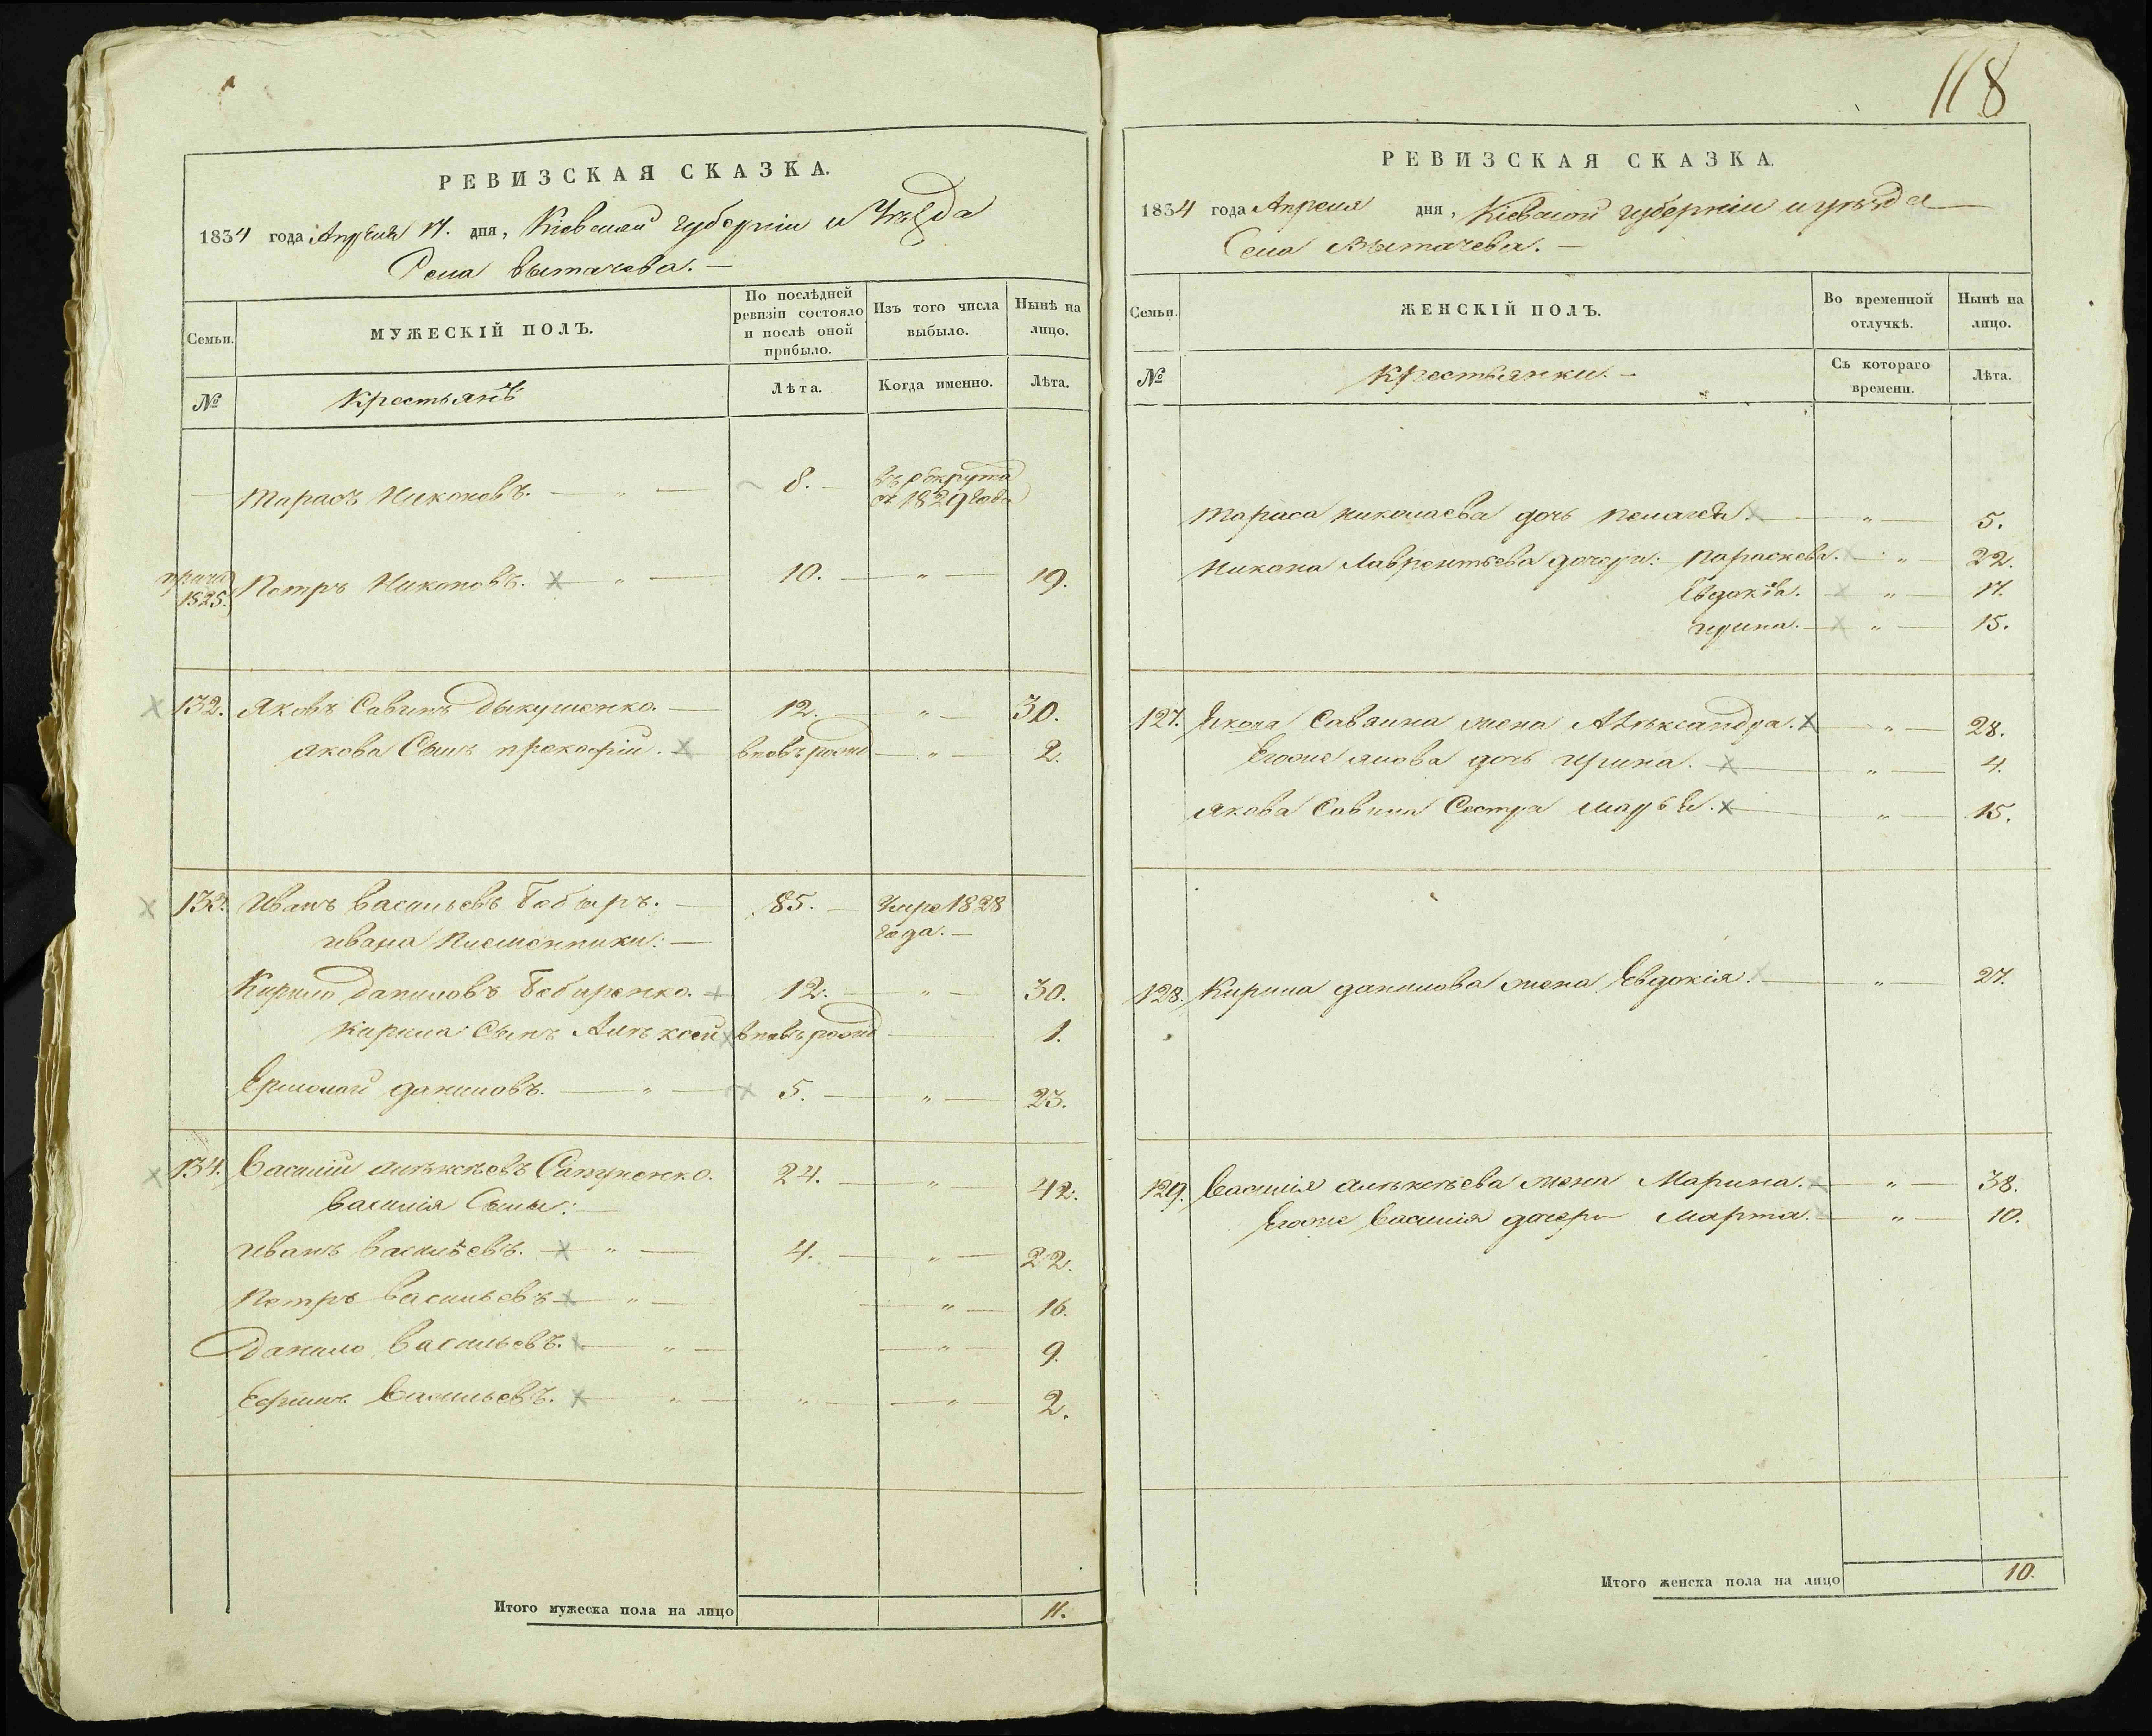 РЕВИЗСКАЯ СКАЗКА.
1834 года Апреля 17. дня, Кіевской губерніи и Уѣзда
Села Вытачева.
Семьи.
МУЖЕСКІЙ ПОЛЪ.
По послѣдней ревизіи состояло и послѣ оной прибыло.
Изъ того числа выбыло.
Нынѣ на лицо.
№
Крестьянъ
Лѣта.
Когда именно.
Лѣта.
Тарасъ Никоновъ. 8.
въ рекрута
съ 1829 года
1825. Петръ Никоновъ. 10. 19.
132. Яковъ Савинъ 12. 30.
Якова Сынъ Прокофій. вновь рожд 2.
133. Иванъ Васильевъ Бобыръ. 85. Умре 1828
Ивана Племенники: года.
Кирило Даниловъ Бобыренко. 12. 30.
Кирила Сынъ Алѣксей вновь рожд 1.
Ермолай Даниловъ. 5. 23.
134. Василій Алѣксѣевъ Сапуненко. 24. 42.
Василія Сыны:
Иванъ Васильевъ. 4. 22.
Петръ Васильевъ 16.
Данило Васильевъ. 9.
Ефимъ Васильевъ. 2.
Итого мужеска пола на лицо 11.
118
РЕВИЗСКАЯ СКАЗКА.
1834 года Апреля дня, Кіевской губерніи и уѣзда
Села Вытачева.
Семьи.
ЖЕНСКІЙ ПОЛЪ.
Во временной отлучкѣ.
Нынѣ на лицо.
№
Крестьянки.
Съ котораго времени.
Лѣта.
Тараса Николаева дочь 5.
Никона Лаврентьева дочери: Параскева. 22.
Евдокѣа. 17.
Ирина. 15.
127. Савина жена Алѣксандра. 28.
Егоже Якова дочь Ирина. 4.
Якова Савина Сестра Марья. 15.
128. Кирила Данилова жена Евдокія. 27.
129. Василія Алѣксѣева жена Марина. 38.
Егоже Василія дочери Марта. 10.
Итого женска пола на лицо 10.